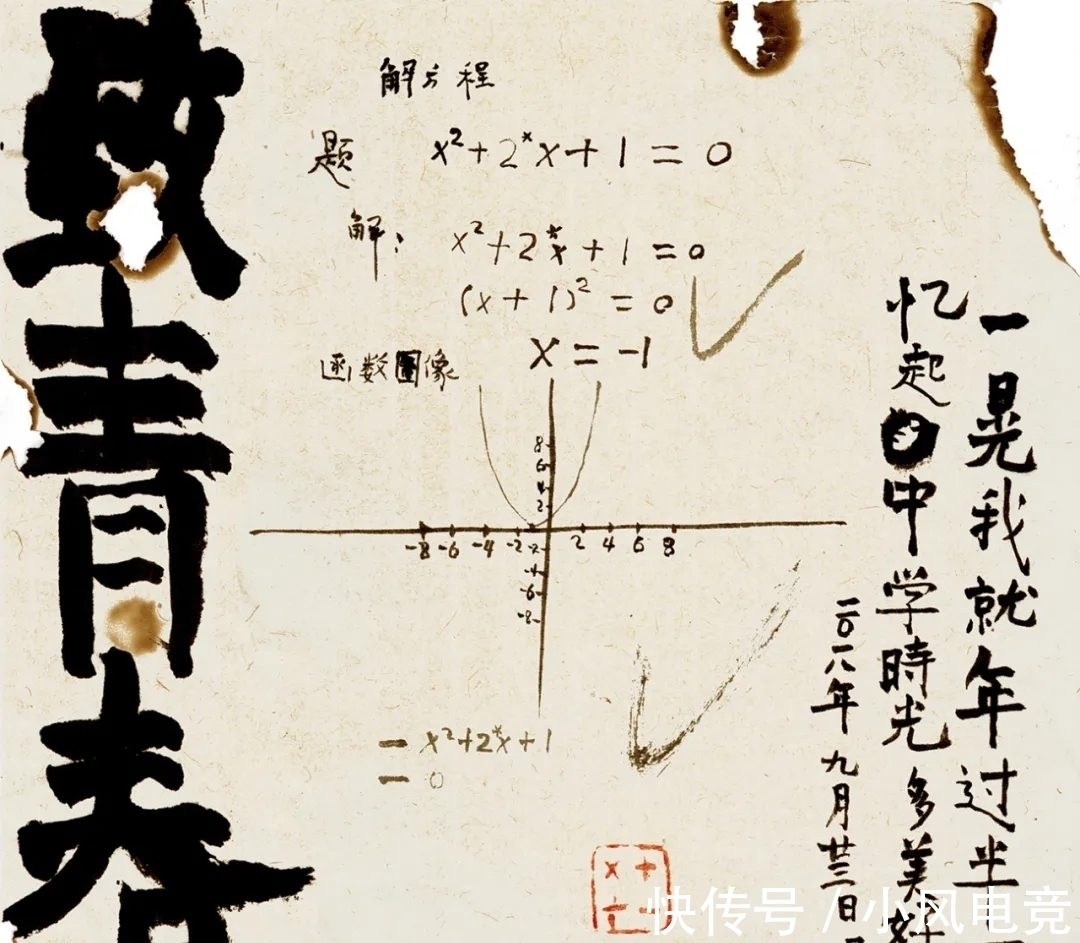 致青春
解方程
题 x²+2ˣx+1=0
解: x²+2ˣx+1=0
(x+1)²=0
x=-1
函数圖像
8
6
4
2
-8 -6 -4 -2 2 4 6 8
-2
-4
-6
-8
x²+2ˣx+1
0
一晃我就年过半
忆起中学時光多美好
二〇一八年九月廿三日
× +
÷ −
快传号 / 小风电竞